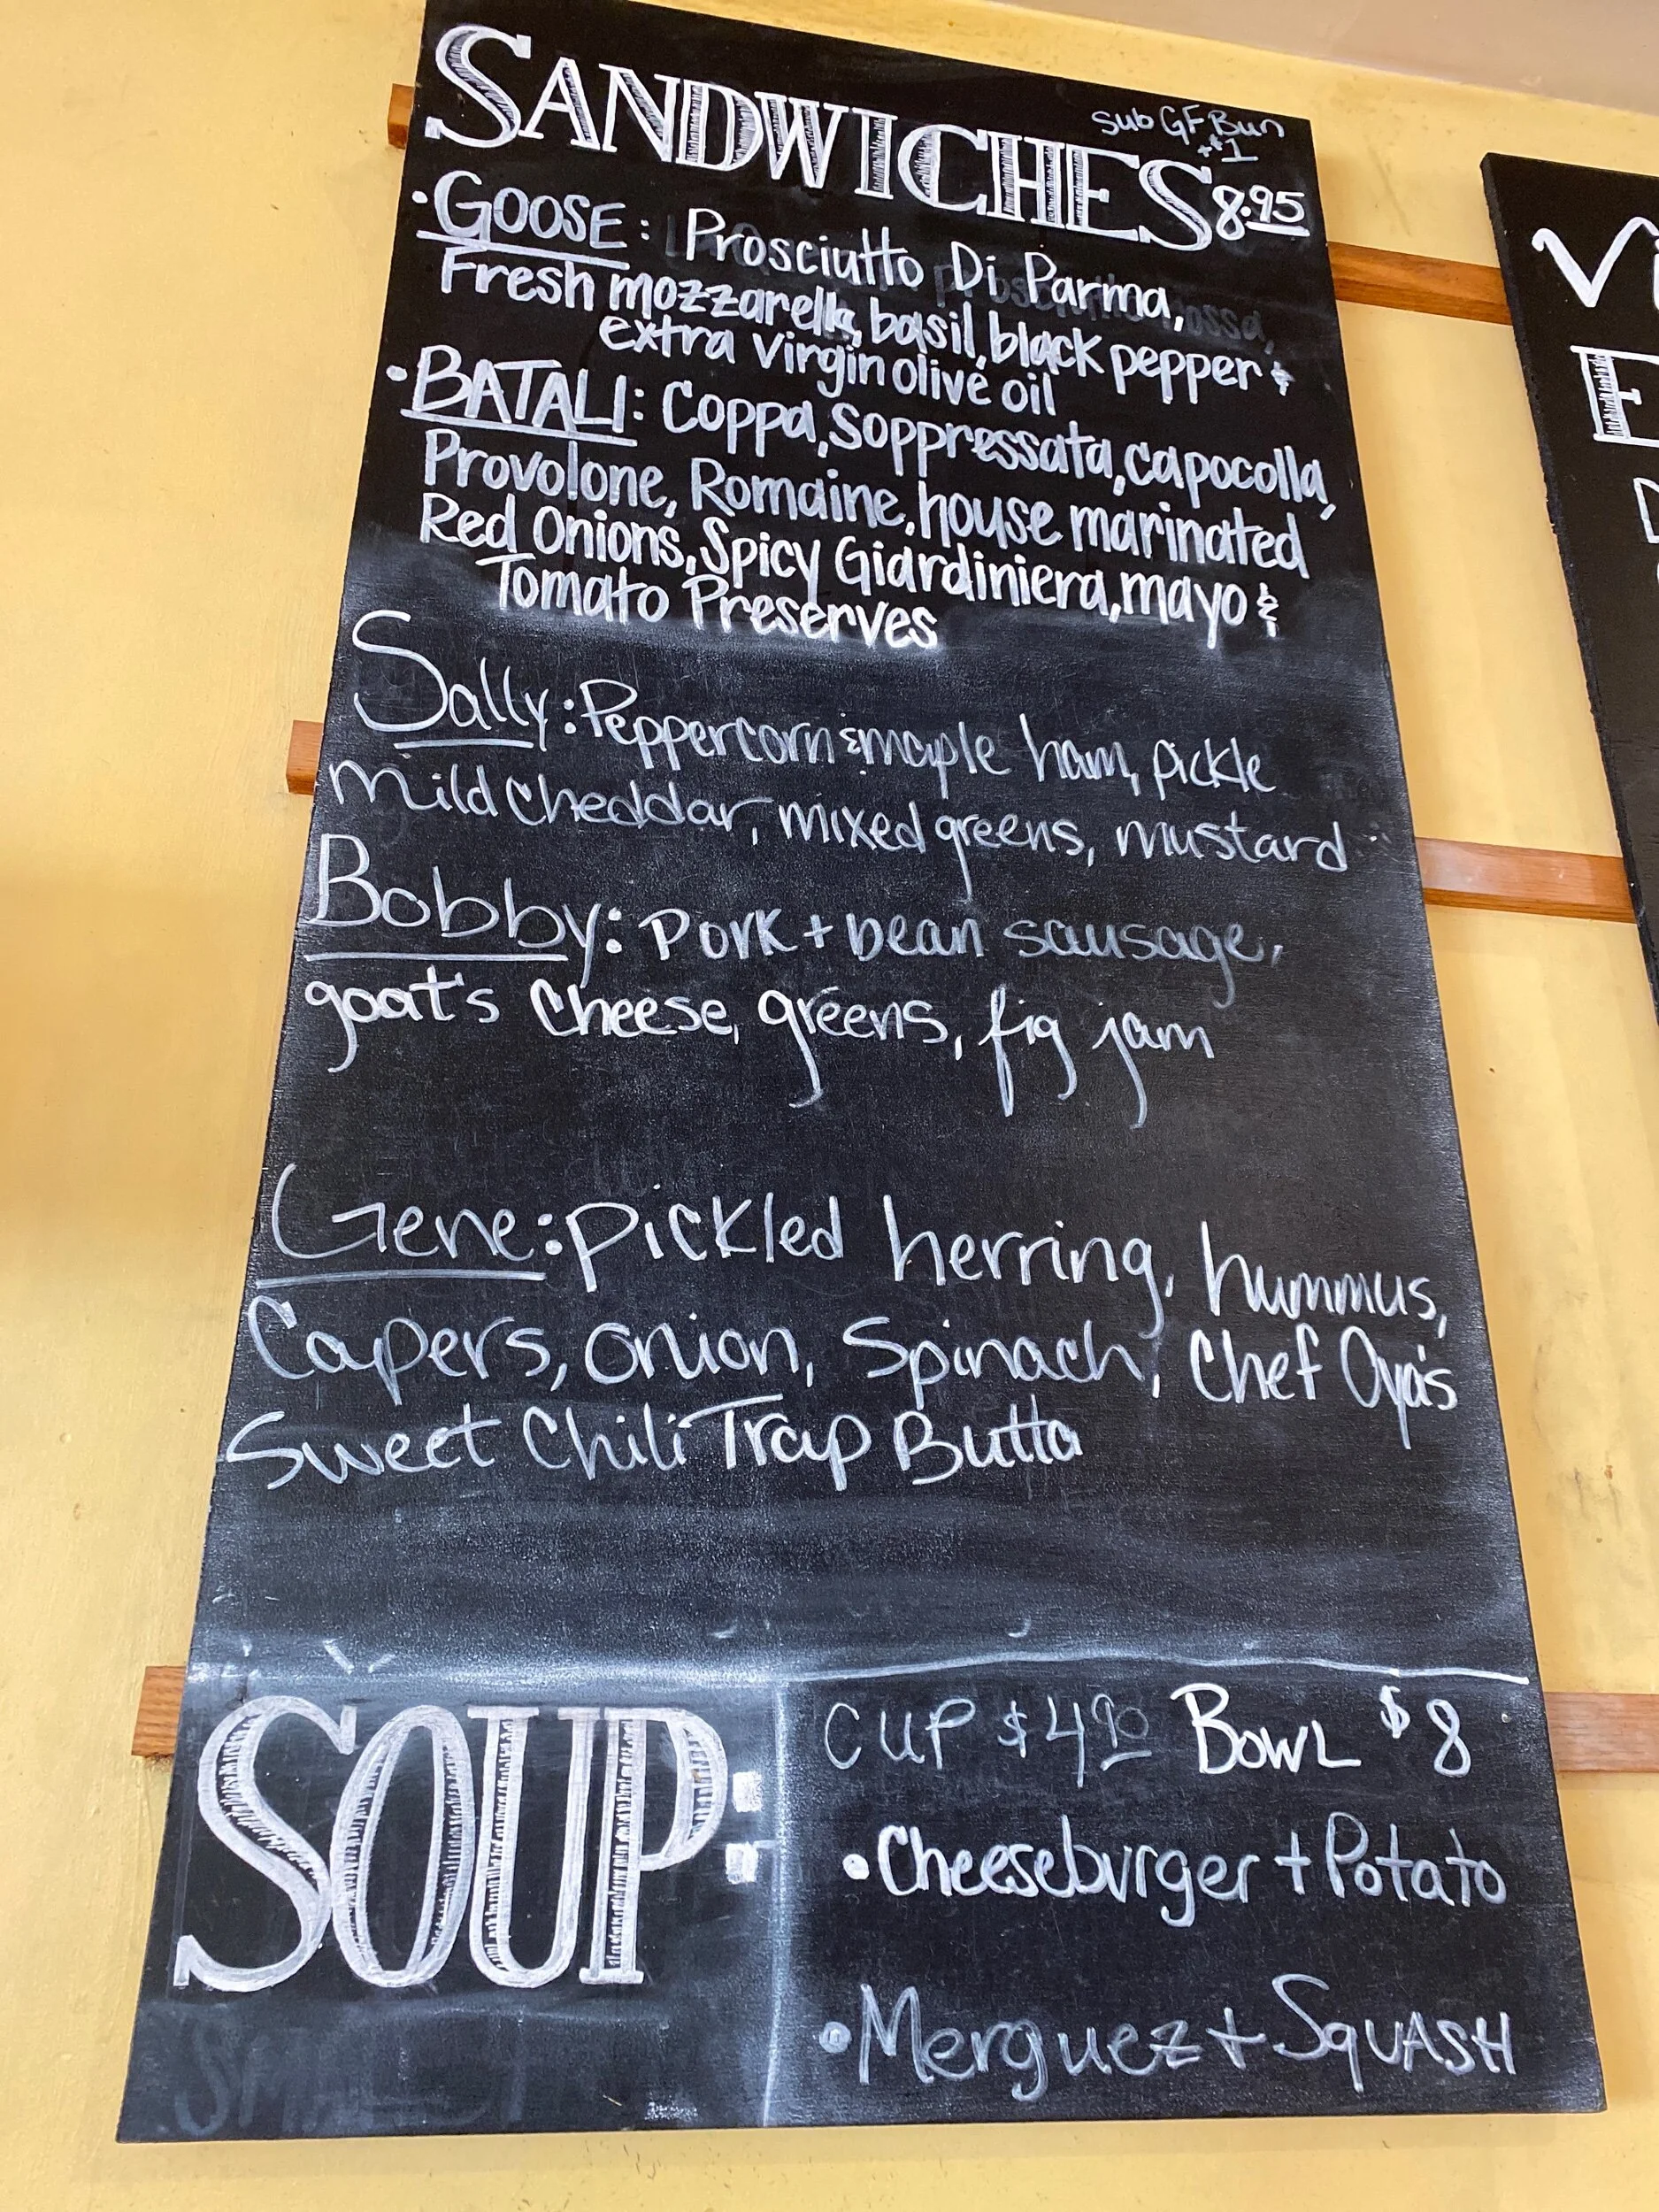 SANDWICHES 8.95
Sub GF Bun
+$1
•GOOSE: Prosciutto Di Parma,
Fresh mozzarella, basil, black pepper &
extra virgin olive oil
•BATALI: Coppa, Soppressata, capocolla,
Provolone, Romaine, house marinated
Red Onions, Spicy Giardiniera, mayo &
Tomato Preserves
Sally: Peppercorn & maple ham, pickle
mild cheddar, mixed greens, mustard
Bobby: Pork + bean sausage,
goat's cheese, greens, fig jam
Gene: Pickled herring, hummus,
Capers, onion, Spinach, Chef Oya's
Sweet Chili Trap Butta
SOUP:
CUP $4.90 BOWL $8
•Cheeseburger + Potato
•Merguez + SQUASH